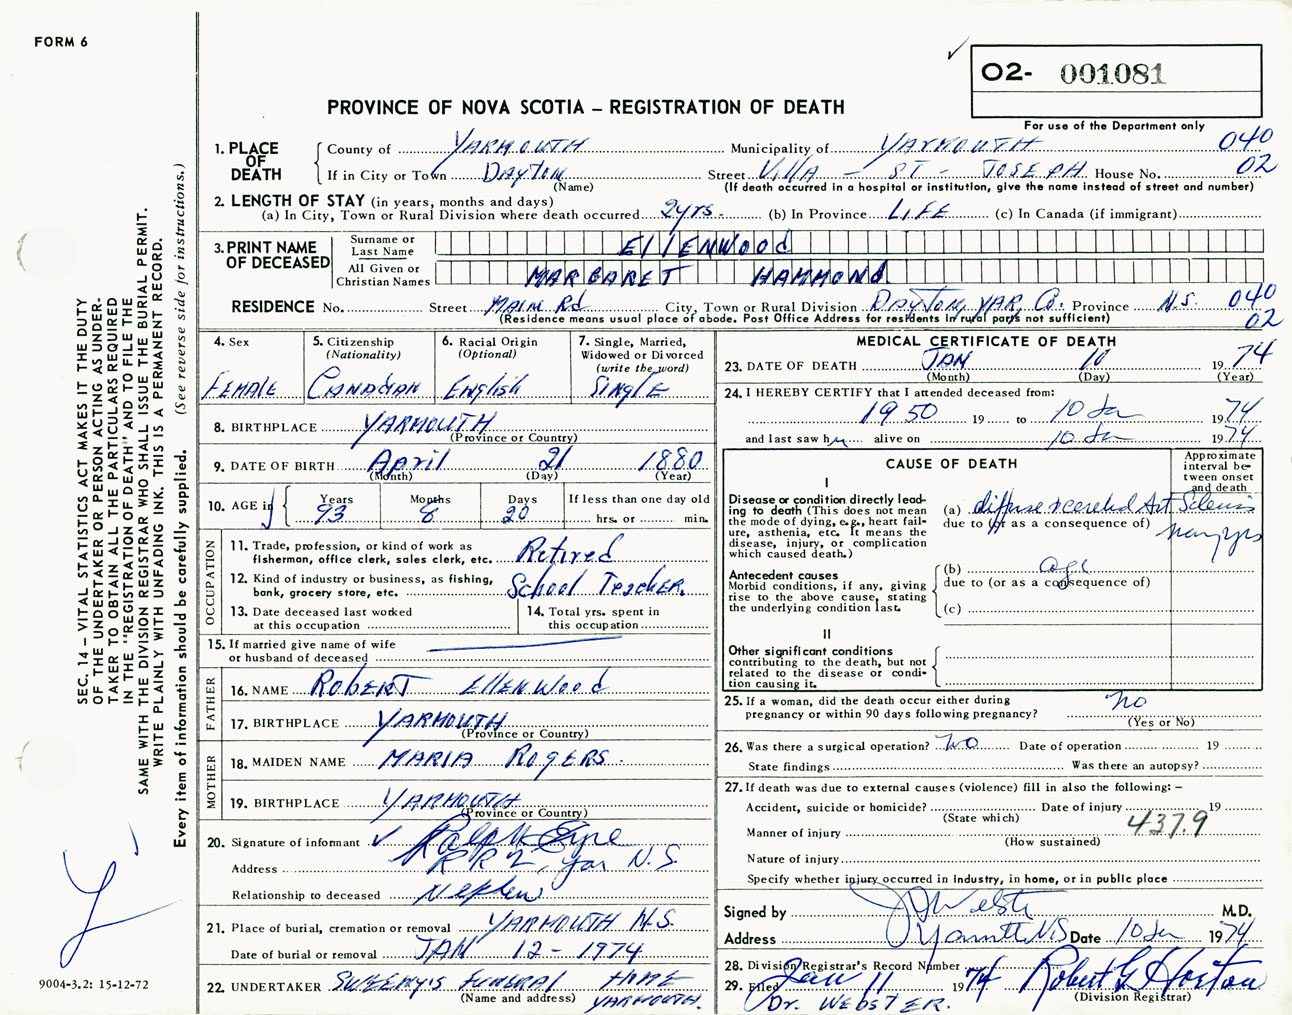 FORM 6
O2- 001081
PROVINCE OF NOVA SCOTIA – REGISTRATION OF DEATH
For use of the Department only
1. PLACE OF DEATH
County of YARMOUTH Municipality of YARMOUTH 040
If in City or Town DAYTON Street Villa - ST - JOSEPH House No. 02
(Name) (If death occurred in a hospital or institution, give the name instead of street and number)
2. LENGTH OF STAY (in years, months and days)
(a) In City, Town or Rural Division where death occurred 2yrs. (b) In Province LIFE (c) In Canada (if immigrant)
3. PRINT NAME OF DECEASED
Surname or Last Name EllENWOOd
All Given or Christian Names MARGARET HAMMONd
RESIDENCE No. Street MAIN Rd City, Town or Rural Division DAYTON, YAR, Co. Province N.S. 040
(Residence means usual place of abode. Post Office Address for residents in rural parts not sufficient) 02
4. Sex FEMALE
5. Citizenship (Nationality) CANADIAN
6. Racial Origin (Optional) English
7. Single, Married, Widowed or Divorced (write the word) SINGlE
8. BIRTHPLACE YARMOUTH
(Province or Country)
9. DATE OF BIRTH April 21 1880
(Month) (Day) (Year)
10. AGE in Years 93 Months 8 Days 20 If less than one day old hrs. or min.
OCCUPATION
11. Trade, profession, or kind of work as fisherman, office clerk, sales clerk, etc. Retired
12. Kind of industry or business, as fishing, bank, grocery store, etc. School Teacher.
13. Date deceased last worked at this occupation
14. Total yrs. spent in this occupation
15. If married give name of wife or husband of deceased
FATHER
16. NAME RObERT EllENWOOd
17. BIRTHPLACE YARMOUTH
(Province or Country)
MOTHER
18. MAIDEN NAME MARIA ROGERS.
19. BIRTHPLACE YARMOUTH
(Province or Country)
20. Signature of informant Ralph Eyre
Address RR2, Yar N.S.
Relationship to deceased Nephew
21. Place of burial, cremation or removal YARMOUTH N.S.
Date of burial or removal JAN 12 - 1974
22. UNDERTAKER SWEENY'S FUNERAL HOME
(Name and address) YARMOUTH.
MEDICAL CERTIFICATE OF DEATH
23. DATE OF DEATH JAN 10 1974
(Month) (Day) (Year)
24. I HEREBY CERTIFY that I attended deceased from:
1950 19 to 10 Jan 1974
and last saw her alive on 10 Jan 1974
CAUSE OF DEATH
Approximate interval between onset and death
I
Disease or condition directly leading to death (This does not mean the mode of dying, e.g., heart failure, asthenia, etc. It means the disease, injury, or complication which caused death.)
(a) diffuse cerebral Art Sclerosis
due to (or as a consequence of) many yrs
Antecedent causes
Morbid conditions, if any, giving rise to the above cause, stating the underlying condition last.
(b) age
due to (or as a consequence of)
(c)
II
Other significant conditions
contributing to the death, but not related to the disease or condition causing it.
25. If a woman, did the death occur either during pregnancy or within 90 days following pregnancy? no
(Yes or No)
26. Was there a surgical operation? no Date of operation 19
State findings Was there an autopsy?
27. If death was due to external causes (violence) fill in also the following: –
Accident, suicide or homicide? Date of injury 19
(State which)
Manner of injury 437.9
(How sustained)
Nature of injury
Specify whether injury occurred in industry, in home, or in public place
Signed by Webster M.D.
Address Yarmouth NS Date 10 Jan 1974
28. Division Registrar's Record Number
29. Filed Jan 11 1974 Robert G Horton
Dr. WEBSTER. (Division Registrar)
SEC. 14 – VITAL STATISTICS ACT MAKES IT THE DUTY
OF THE UNDERTAKER OR PERSON ACTING AS UNDER-
TAKER TO OBTAIN ALL THE PARTICULARS REQUIRED
IN THE "REGISTRATION OF DEATH" AND TO FILE THE
SAME WITH THE DIVISION REGISTRAR WHO SHALL ISSUE THE BURIAL PERMIT.
WRITE PLAINLY WITH UNFADING INK. THIS IS A PERMANENT RECORD.
Every item of information should be carefully supplied. (See reverse side for instructions.)
9004-3.2: 15-12-72